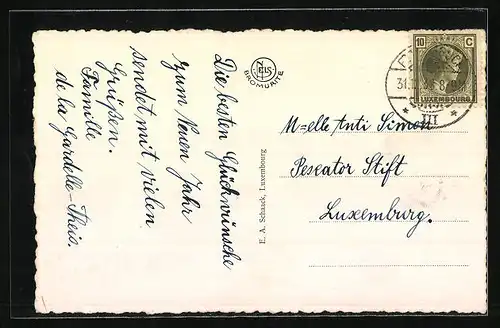 Die besten Glückwünsche
zum Neuen Jahr
sendet mit vielen
Grüßen.
Familie
de la Gardelle-Theis.
NELS
BROMURNE
E. A. Schaack, Luxembourg
10 C
LUXEMBOURG
III
M=elle Anti Simon
Pescator Stift
Luxemburg.